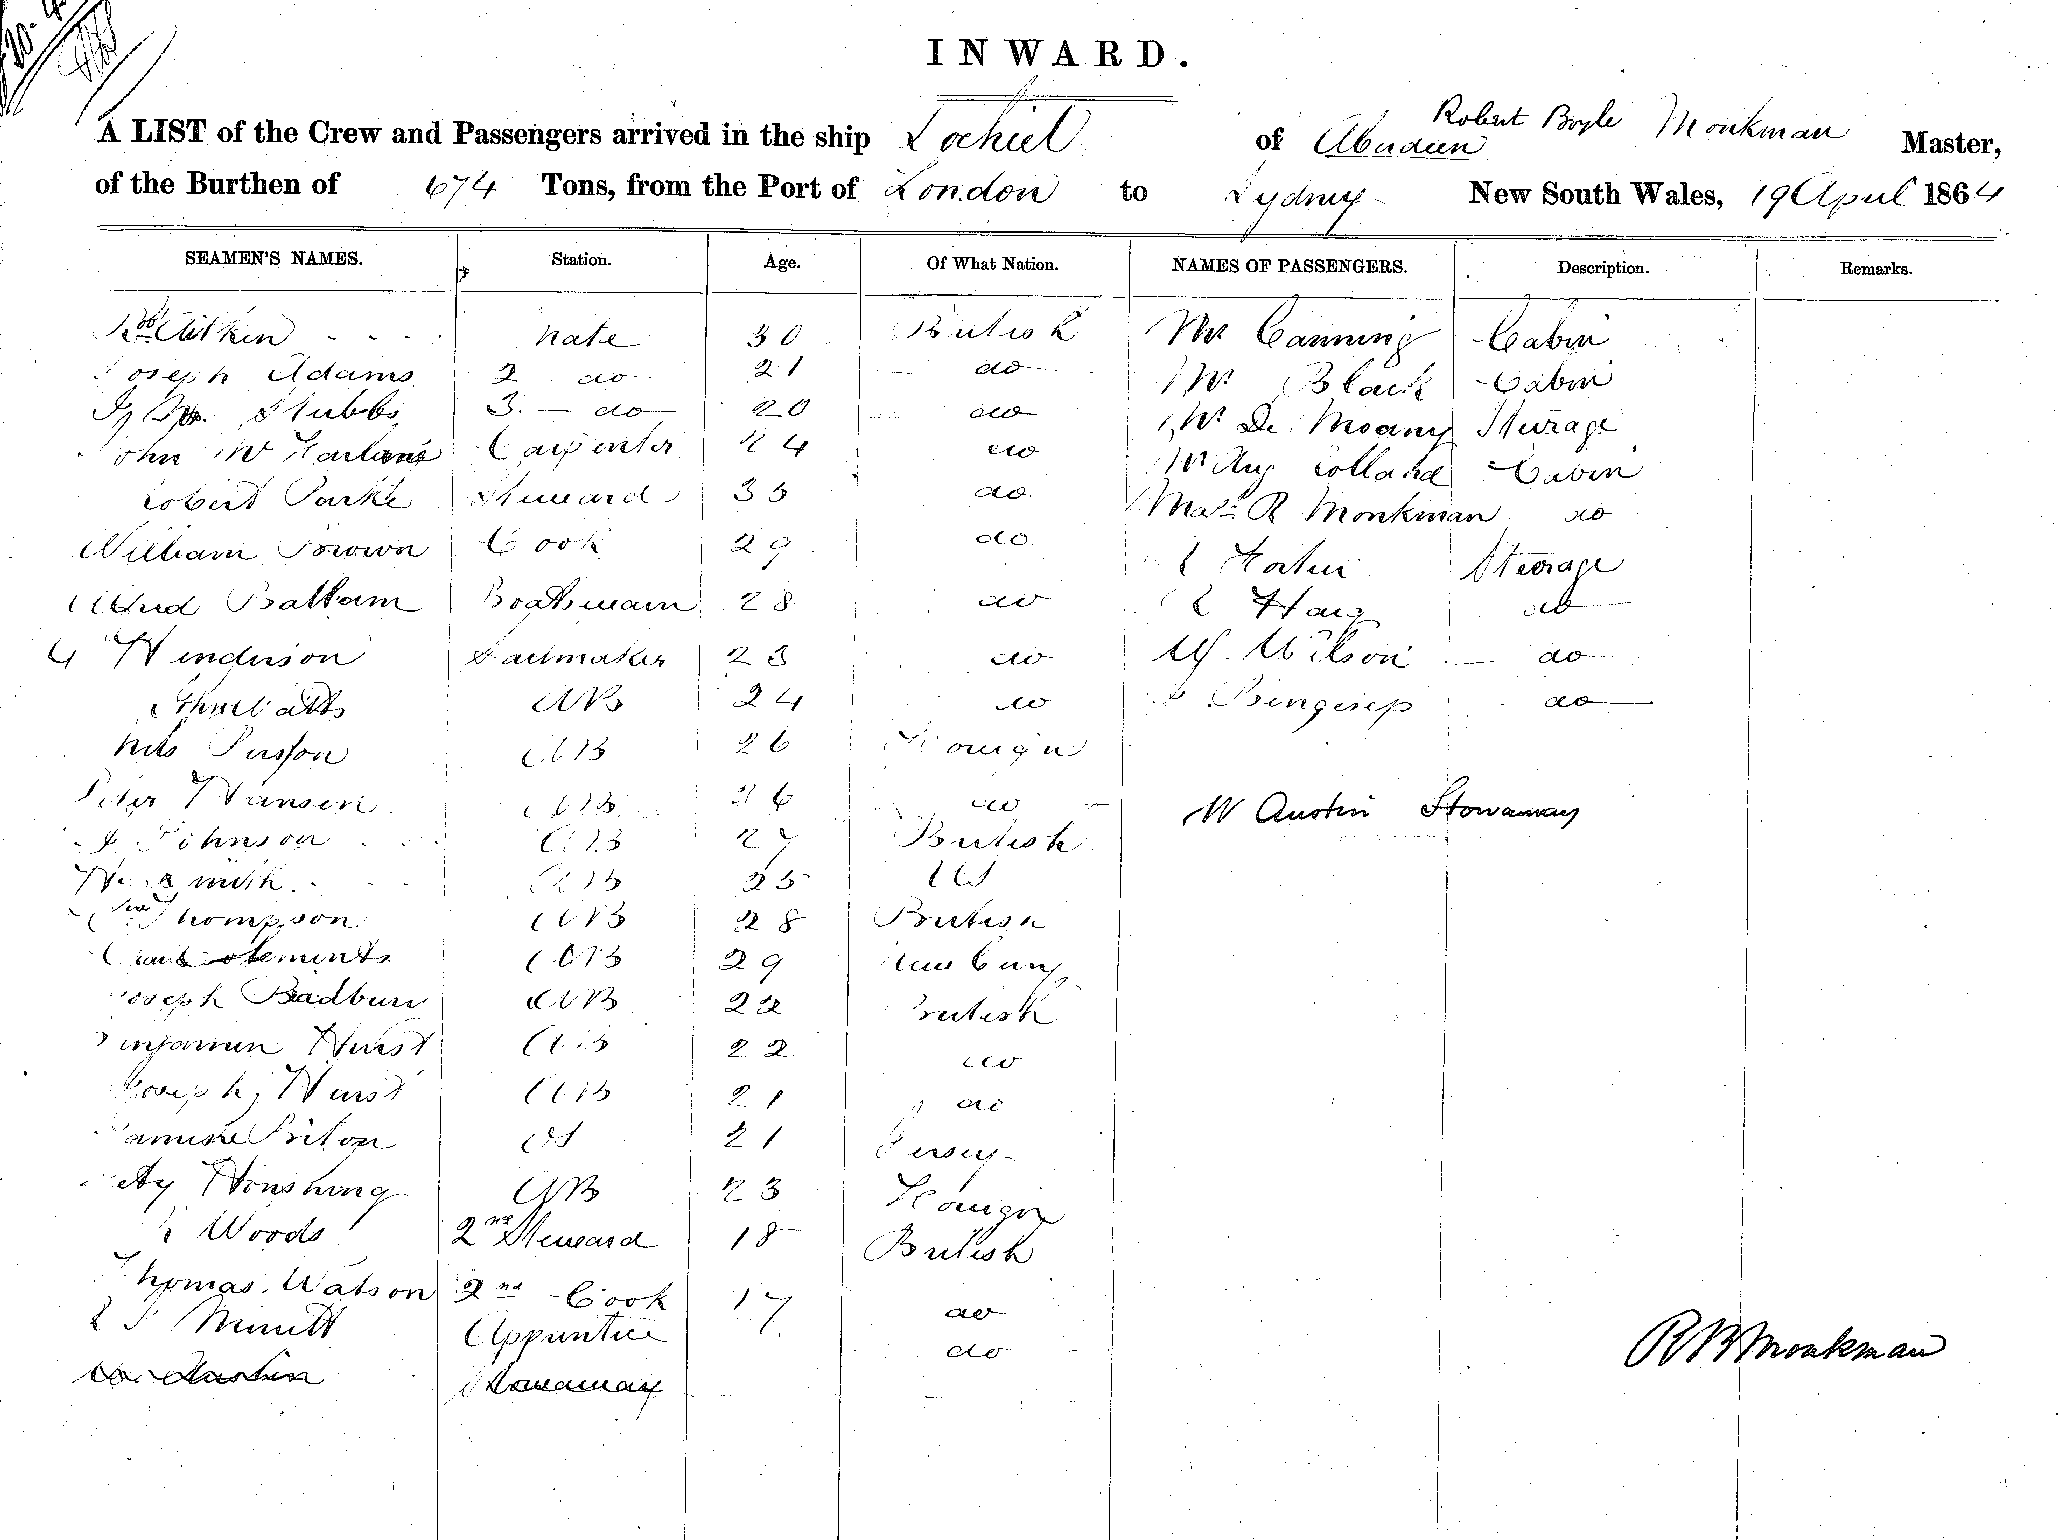 INWARD.
A LIST of the Crew and Passengers arrived in the ship Lochiel of Aberdeen Robert Boyle Monkman Master,
of the Burthen of 674 Tons, from the Port of London to Sydney New South Wales, 19 April 1864
SEAMEN'S NAMES. Station. Age. Of What Nation. NAMES OF PASSENGERS. Description. Remarks.
Aitken Mate 30 British Mr Canning Cabin
Joseph Adams 2 do 21 do Mr Black Cabin
Stubbs 3. do 20 do Mr De Steerage
John Mc Farlane Carpenter 24 do Mr Aug Cabin
Robert Parke Steward 35 do Mas R Monkman do
William Brown Cook 29 do Steerage
Battam Boatswain 28 do Haig do
G Henderson Sailmaker 23 do Wilson do
AB 24 do do
Nils Persson AB 26 Foreign
Peter Hansen AB 26 do W Austin Stowaway
J Johnson AB 27 British
Smith AB 25 US
Thompson AB 28 British
Clements AB 29
Joseph Bradburn AB 22 British
Benjamin Hurst AB 22 do
Joseph Hurst AB 21 do
OS 21 Jersey
AB 23 Foreign
Woods 2nd Steward 18 British
Thomas Watson 2nd Cook 17 do
Apprentice do
W. Austin Stowaway
R B Monkman